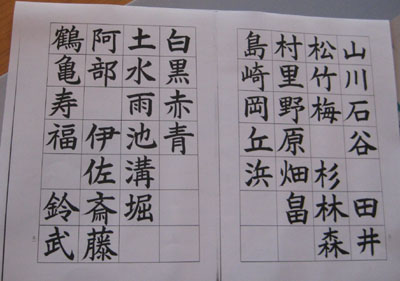 山川石谷 田井
松竹梅 杉林森
村里野原畑畠
島崎岡丘浜
白黒赤青
土水雨池溝堀
阿部 伊佐斎藤
鶴亀寿福 鈴武